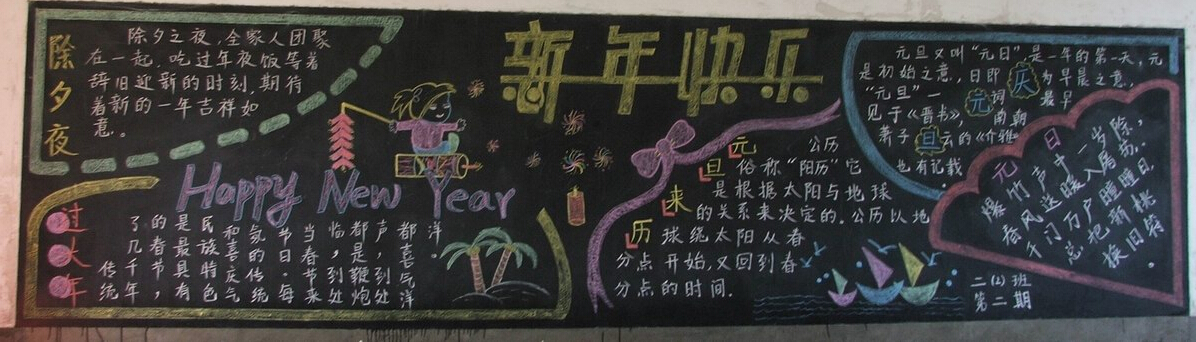 新年快乐
除夕夜
除夕之夜,全家人团聚
在一起,吃过年夜饭等着
辞旧迎新的时刻,期待
着新的一年吉祥如
意。
Happy New Year
过大年
传统
了几千年,
的春节,
是最具有
民族特色
和喜庆气
氛的传统
节日。每
当春节来
临,到处
都是鞭炮
声,到处
都喜气洋
洋。
元旦来历
公历
俗称“阳历”它
是根据太阳与地球
的关系来决定的。公历以地
球绕太阳从春
分点开始,又回到春
分点的时间.
元旦又叫“元日”是一年的第一天,元
是初始之意,日即 为早晨之意,
“元旦”一 词 最早
见于《晋书》, 南朝
萧子云的《介雅》
也有记载.
庆元旦
元日
爆竹声中一岁除,
春风送暖入屠苏.
千门万户曈曈日
总把新桃
换旧符.
二(2)班
第二期